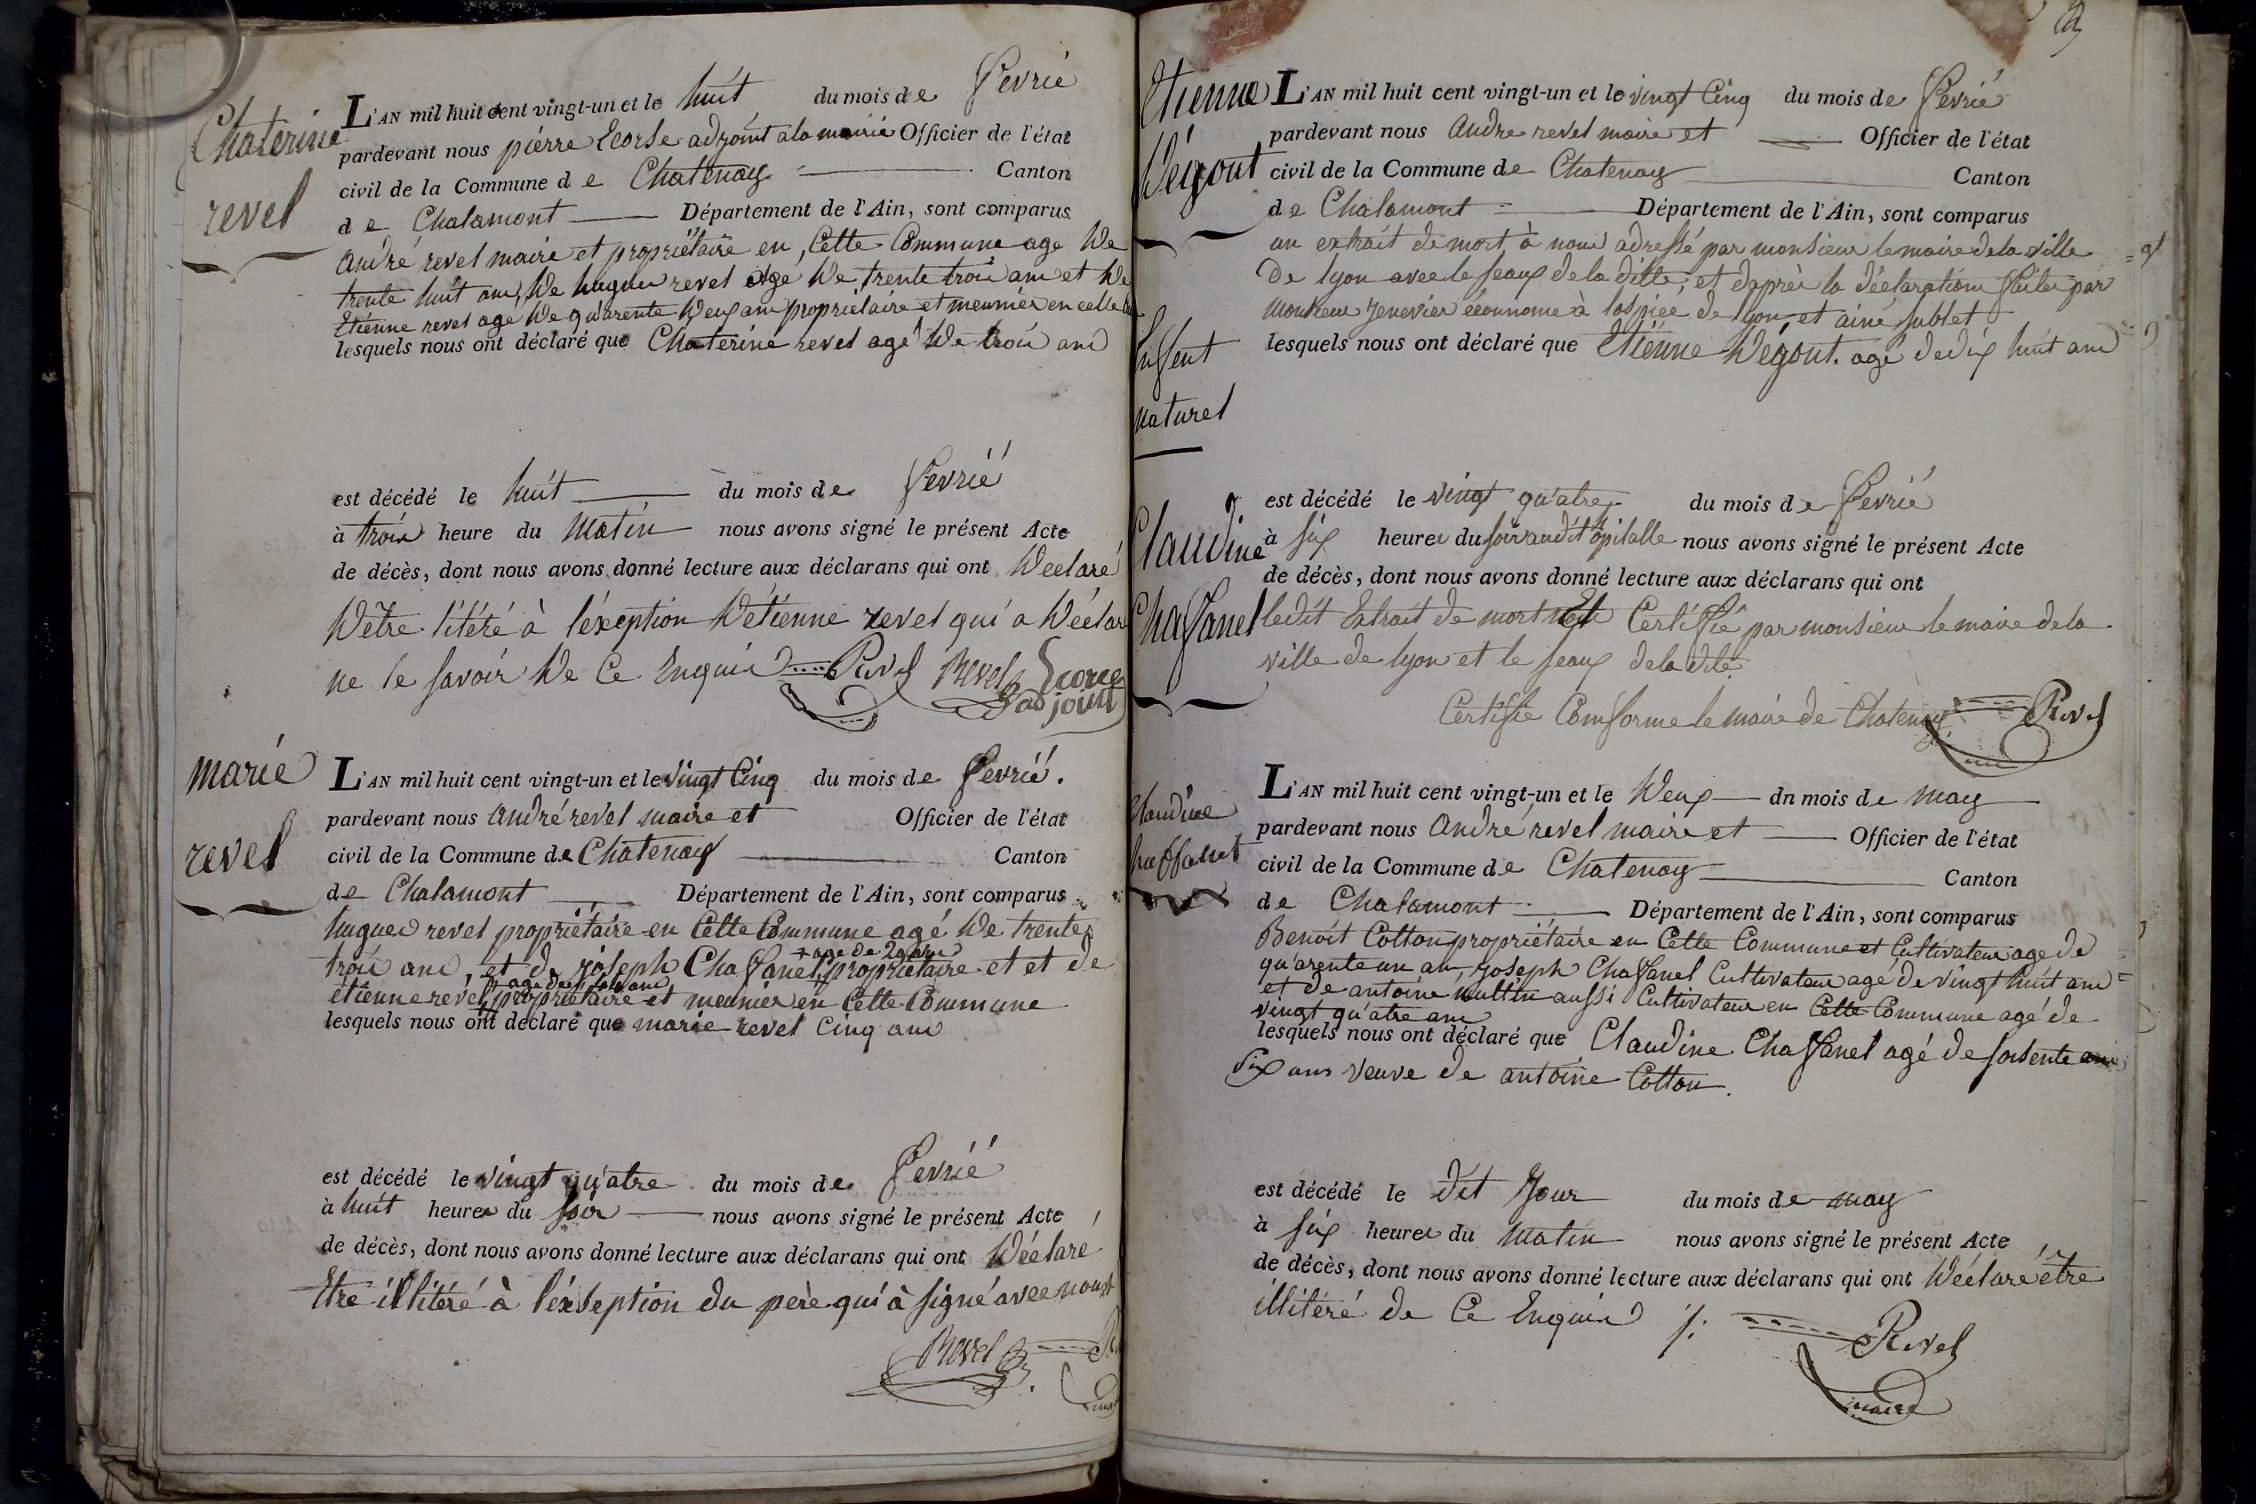 Chaterine
revel
L'AN mil huit cent vingt-un et le huit du mois de fevrié
pardevant nous pierre Ecorse adjoint a la mairie Officier de l'état
civil de la Commune de Chatenay Canton
de Chalamont Département de l'Ain, sont comparus
André revel maire et propriétaire en Cette Commune age de
trente huit ans, de hugues revel age de trente trois ans et de
Etiénne revel age de qu'arente deux ans propriétaire et meunier en cette
lesquels nous ont déclaré que Chaterine revel agé de trois ans
est décédé le huit du mois de fevrié
à trois heure du matin nous avons signé le présent Acte
de décès, dont nous avons donné lecture aux déclarans qui ont déclaré
d'être litéré à l'éxception d'étienne revel qui a déclaré
ne le savoir de Ce Enquis Revel Revel Ecorce
adjoint
marie
revel
L'AN mil huit cent vingt-un et le vingt Cinq du mois de fevrié.
pardevant nous André revel maire et Officier de l'état
civil de la Commune de Chatenay Canton
de Chalamont Département de l'Ain, sont comparus
hugues revel propriétaire en Cette Commune agé de trente
+ age de 29 ans
trois ans, et de joseph Chaffanel, propriétaire et et de
étienne revel, propriétaire et meunier en Cette Commune
lesquels nous ont déclaré que marie revel Cinq ans
est décédé le vingt qu'atre du mois de fevrié
à huit heures du soir nous avons signé le présent Acte
de décès, dont nous avons donné lecture aux déclarans qui ont déclaré
Etre illitéré à l'éxseption du père qui à signé avec nous
Revel
Etienne
Dégout
Enffent
naturel
L'AN mil huit cent vingt-un et le vingt Cinq du mois de fevrié
pardevant nous Andre revel maire et Officier de l'état
civil de la Commune de Chatenay Canton
de Chalamont Département de l'Ain, sont comparus
un extrait de mort à nous adressé par monsieur le maire de la ville
De lyon avec le seaux de la ditte, et daprès la déclaration faites par
monsieur Jenevier économe à lospicé de lyon et ainé sublet
lesquels nous ont déclaré que Etiénne Dégout. agé de dix huit ans
est décédé le vingt qu'atre du mois de fevrié
à six heures du soir audit opitalle nous avons signé le présent Acte
de décès, dont nous avons donné lecture aux déclarans qui ont
ledit Extrait de mort est Certiffié par monsieur le maire de la
ville de lyon et le seaux de la dite.
Certiffie Comforme le maire de Chatenay Revel
Claudine
Chaffanel
Claudine
Chaffanel
L'AN mil huit cent vingt-un et le deux du mois de may
pardevant nous André revel maire et Officier de l'état
civil de la Commune de Chatenay Canton
de Chalamont Département de l'Ain, sont comparus
Benoit Cotton propriétaire en Cette Commune et Cultivateur age de
qu'arente un ans, joseph Chaffanel Cultivateur agé de vingt huit ans
et de antoine aussi Cultivateur en Cette Commune agé de
vingt qu'atre ans
lesquels nous ont déclaré que Claudine Chaffanel agé de soisente
six ans veuve de antoine Cotton.
est décédé le dit Jour du mois de may
à six heures du matin nous avons signé le présent Acte
de décès, dont nous avons donné lecture aux déclarans qui ont déclaré être
illitéré de Ce Enquis Revel
maire